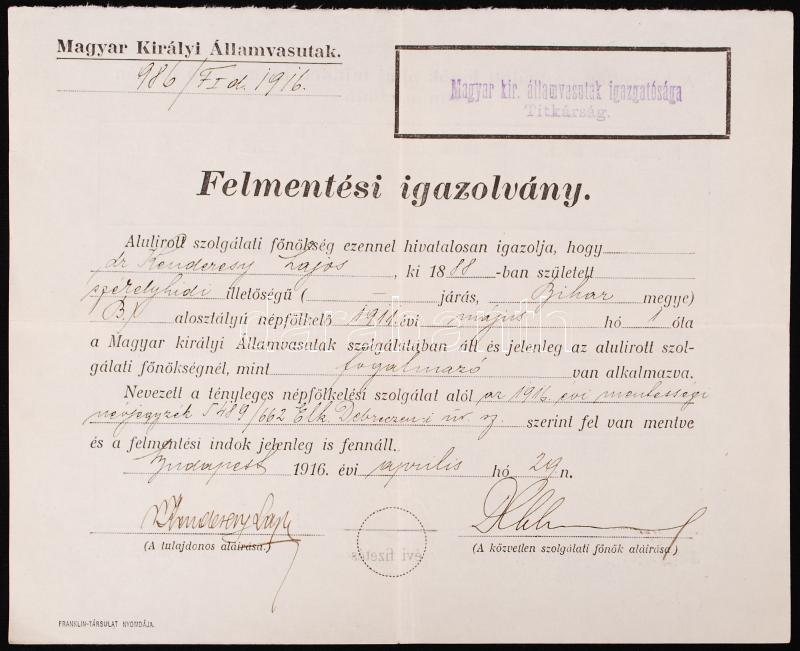 Magyar Királyi Államvasutak.
986/FI d. 1916.
Magyar kir. államvasutak igazgatósága
Titkárság.
Felmentési igazolvány.
Alulirott szolgálati főnökség ezennel hivatalosan igazolja, hogy
dr Kenderesy Lajos, ki 1888-ban született
székelyhidi illetőségű ( — járás, Bihar megye)
B/ alosztályú népfölkelő 1911 évi május hó 1 óta
a Magyar királyi Államvasutak szolgálatában állt és jelenleg az alulirott szol-
gálati főnökségnél, mint fogalmazó van alkalmazva.
Nevezett a tényleges népfölkelési szolgálat alól az 1916. évi mentességi
névjegyzék 5489/662 Elk. Debreczeni üv. sz. szerint fel van mentve
és a felmentési indok jelenleg is fennáll.
Budapest 1916. évi április hó 29 n.
Kenderesy Lajos
(A tulajdonos aláirása.)
(A közvetlen szolgálati főnök aláirása.)
évi fizetés
FRANKLIN-TÁRSULAT NYOMDÁJA.
darabanth